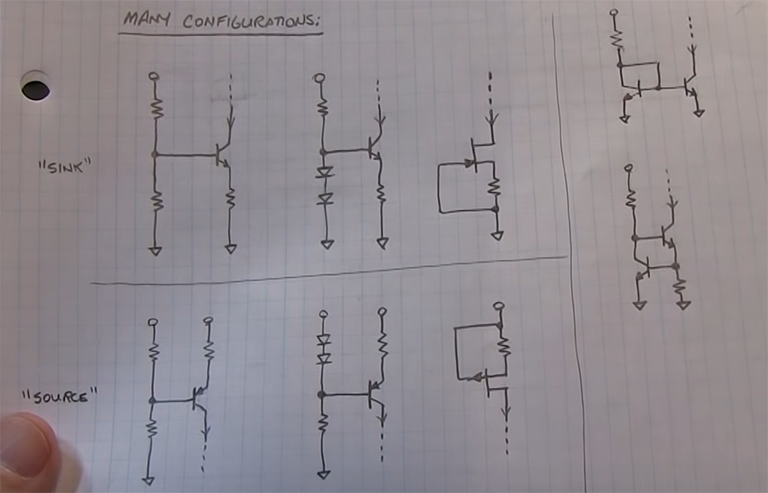 MANY CONFIGURATIONS:
"SINK"
"SOURCE"